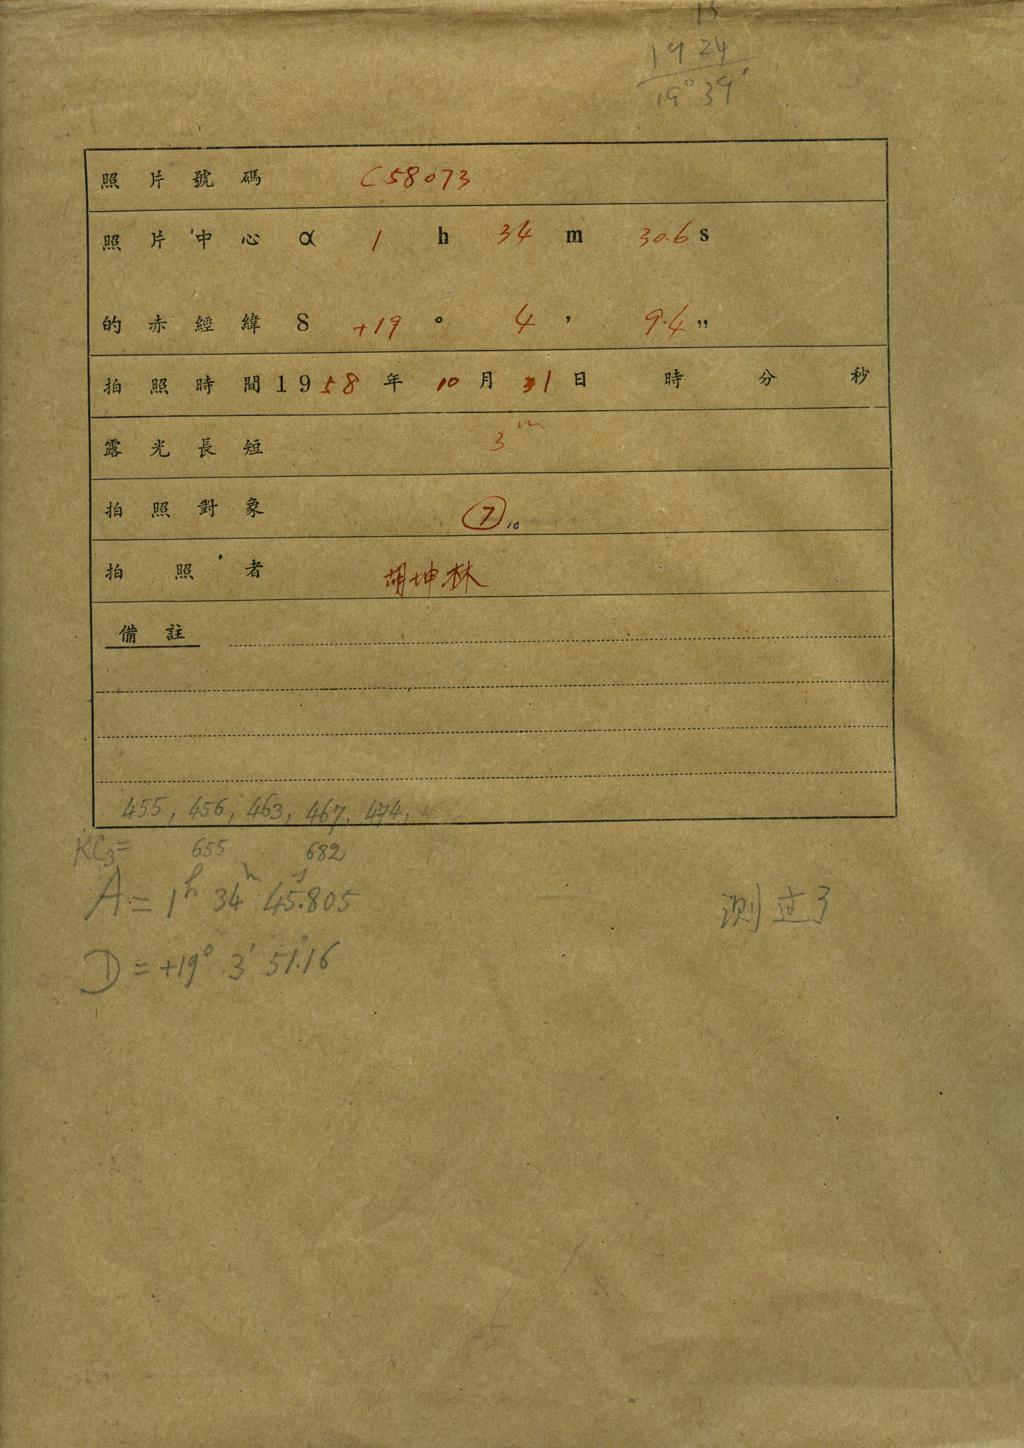 15
19 24
19° 39′
照片號碼 C58073
照片中心 α 1 h 34 m 30.6 s
的赤經緯 δ +19 ° 4 ′ 9.4 ″
拍照時間 1958年 10月 31日 時 分 秒
露光長短 3m
拍照對象 ⑦10
拍照者 胡坤林
備註
455, 456, 463, 467, 474,
KC3= 655 682
A = 1h 34m 45s.805
测过了
D = +19° 3′ 51″.16